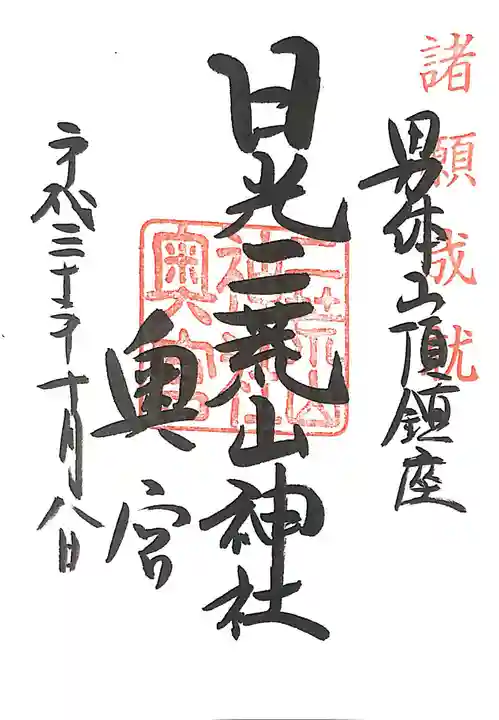 諸願成就
男体山頂鎮座
日光二荒山神社
奥宮
二荒山
神社
奥宮
平成三十年十月八日